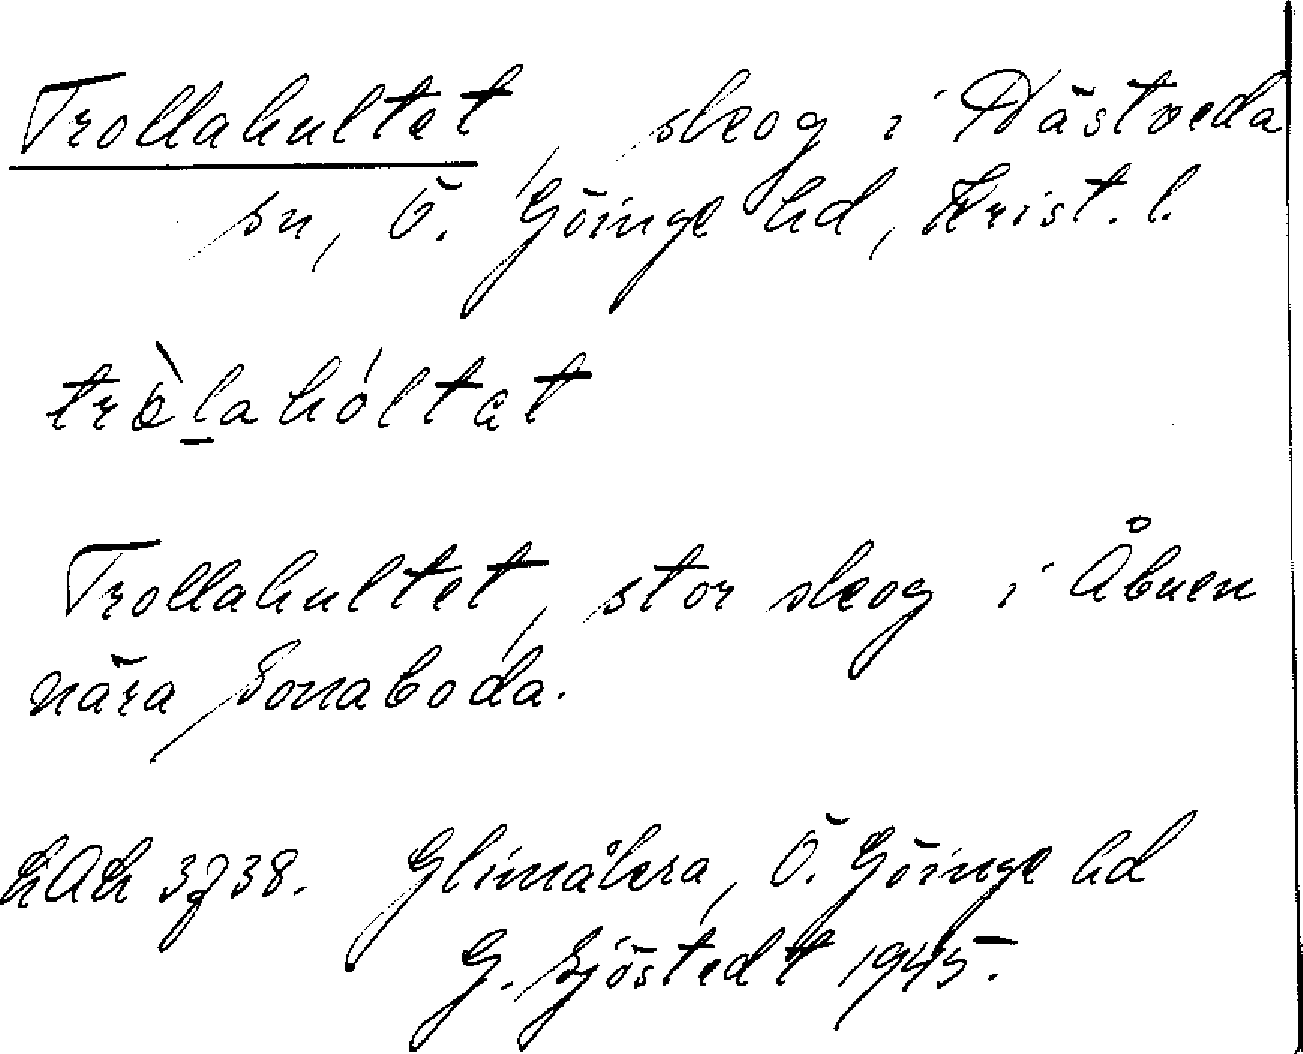 Trollahultet, skog i Hästveda
sn, Ö. Göinge hd, Krist. l.
tròlahóltat
Trollahultet, stor skog i Åbuen
nära Sonaboda.
LAL 3738. Glimåkra, Ö. Göinge hd
G. Sjöstedt 1945.